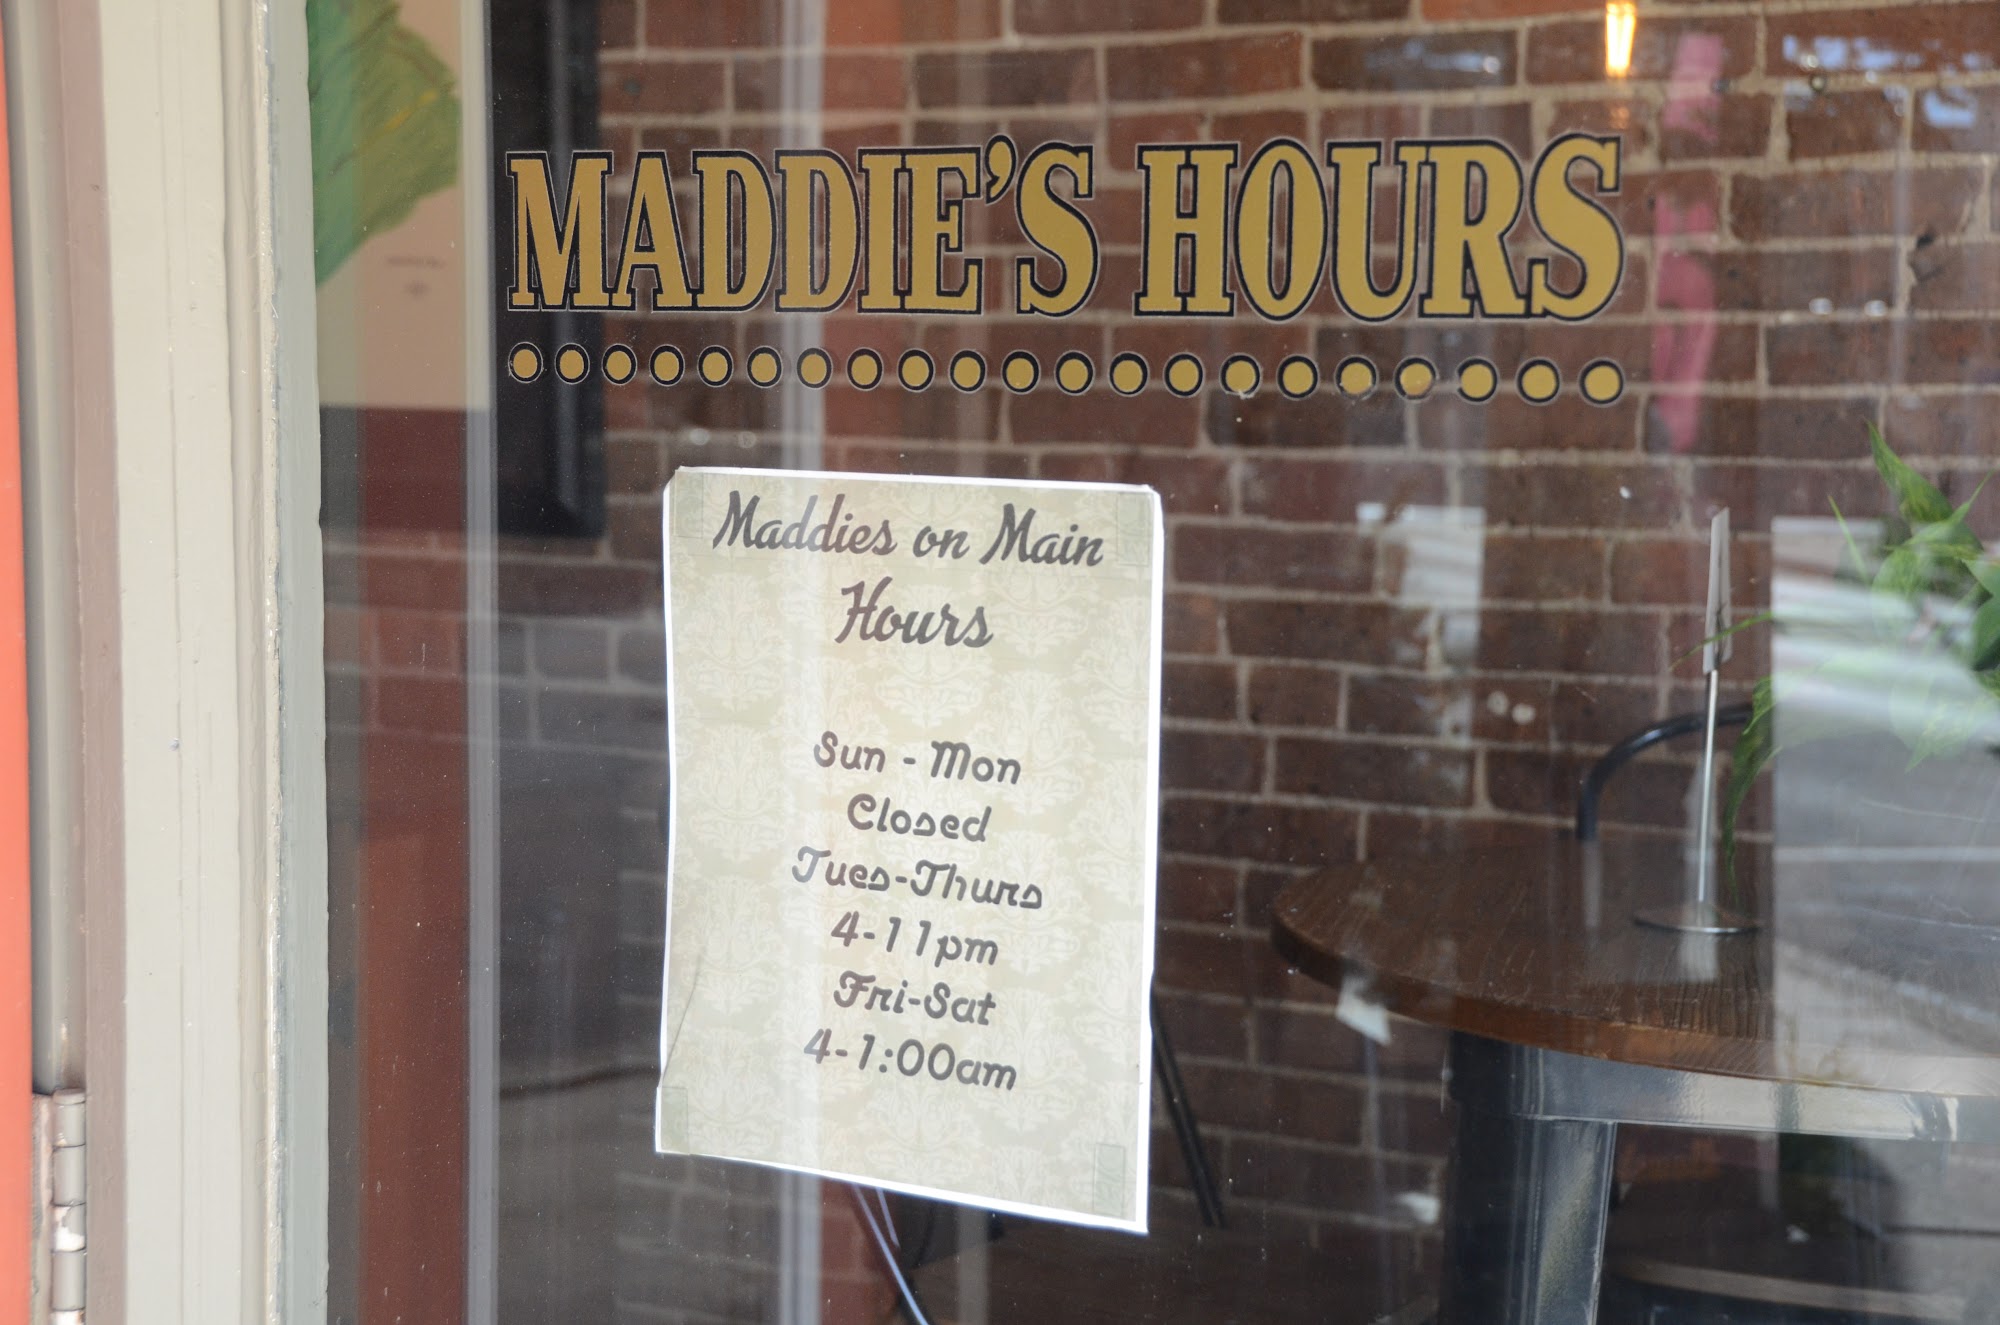 MADDIE'S HOURS
Maddies on Main
Hours
Sun - Mon
Closed
Tues-Thurs
4-11pm
Fri-Sat
4-1:00am